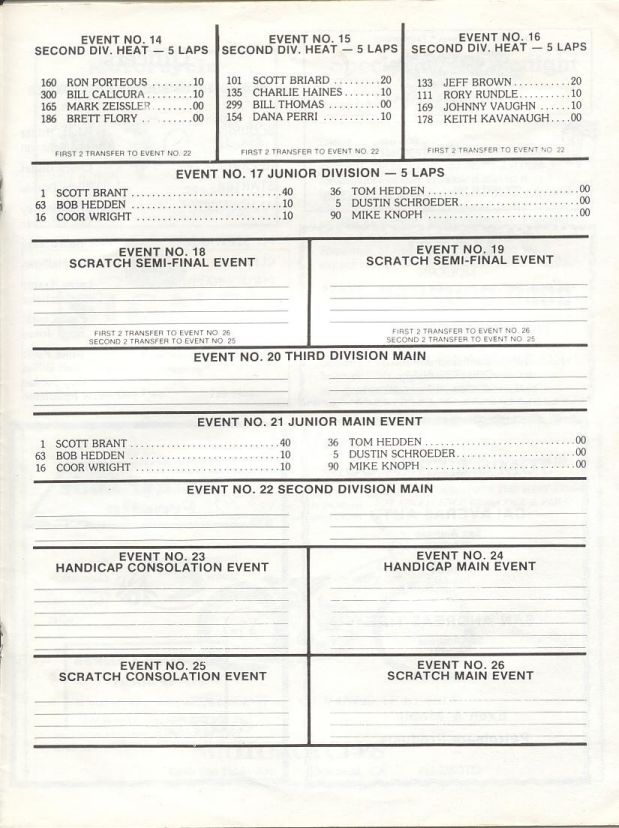 EVENT NO. 14
SECOND DIV. HEAT — 5 LAPS
160 RON PORTEOUS ........10
300 BILL CALICURA ........10
165 MARK ZEISSLER ........00
186 BRETT FLORY ........00
FIRST 2 TRANSFER TO EVENT NO. 22
EVENT NO. 15
SECOND DIV. HEAT — 5 LAPS
101 SCOTT BRIARD .........20
135 CHARLIE HAINES........10
299 BILL THOMAS ..........00
154 DANA PERRI ...........10
FIRST 2 TRANSFER TO EVENT NO. 22
EVENT NO. 16
SECOND DIV. HEAT — 5 LAPS
133 JEFF BROWN ...........20
111 RORY RUNDLE...........10
169 JOHNNY VAUGHN ......10
178 KEITH KAVANAUGH....00
FIRST 2 TRANSFER TO EVENT NO. 22
EVENT NO. 17 JUNIOR DIVISION — 5 LAPS
1 SCOTT BRANT ............................40
63 BOB HEDDEN ............................10
16 COOR WRIGHT ...........................10
36 TOM HEDDEN ............................00
5 DUSTIN SCHROEDER......................00
90 MIKE KNOPH ............................00
EVENT NO. 18
SCRATCH SEMI-FINAL EVENT
FIRST 2 TRANSFER TO EVENT NO. 26
SECOND 2 TRANSFER TO EVENT NO. 25
EVENT NO. 19
SCRATCH SEMI-FINAL EVENT
FIRST 2 TRANSFER TO EVENT NO. 26
SECOND 2 TRANSFER TO EVENT NO. 25
EVENT NO. 20 THIRD DIVISION MAIN
EVENT NO. 21 JUNIOR MAIN EVENT
1 SCOTT BRANT ............................40
63 BOB HEDDEN ............................10
16 COOR WRIGHT ...........................10
36 TOM HEDDEN ............................00
5 DUSTIN SCHROEDER......................00
90 MIKE KNOPH ............................00
EVENT NO. 22 SECOND DIVISION MAIN
EVENT NO. 23
HANDICAP CONSOLATION EVENT
EVENT NO. 24
HANDICAP MAIN EVENT
EVENT NO. 25
SCRATCH CONSOLATION EVENT
EVENT NO. 26
SCRATCH MAIN EVENT